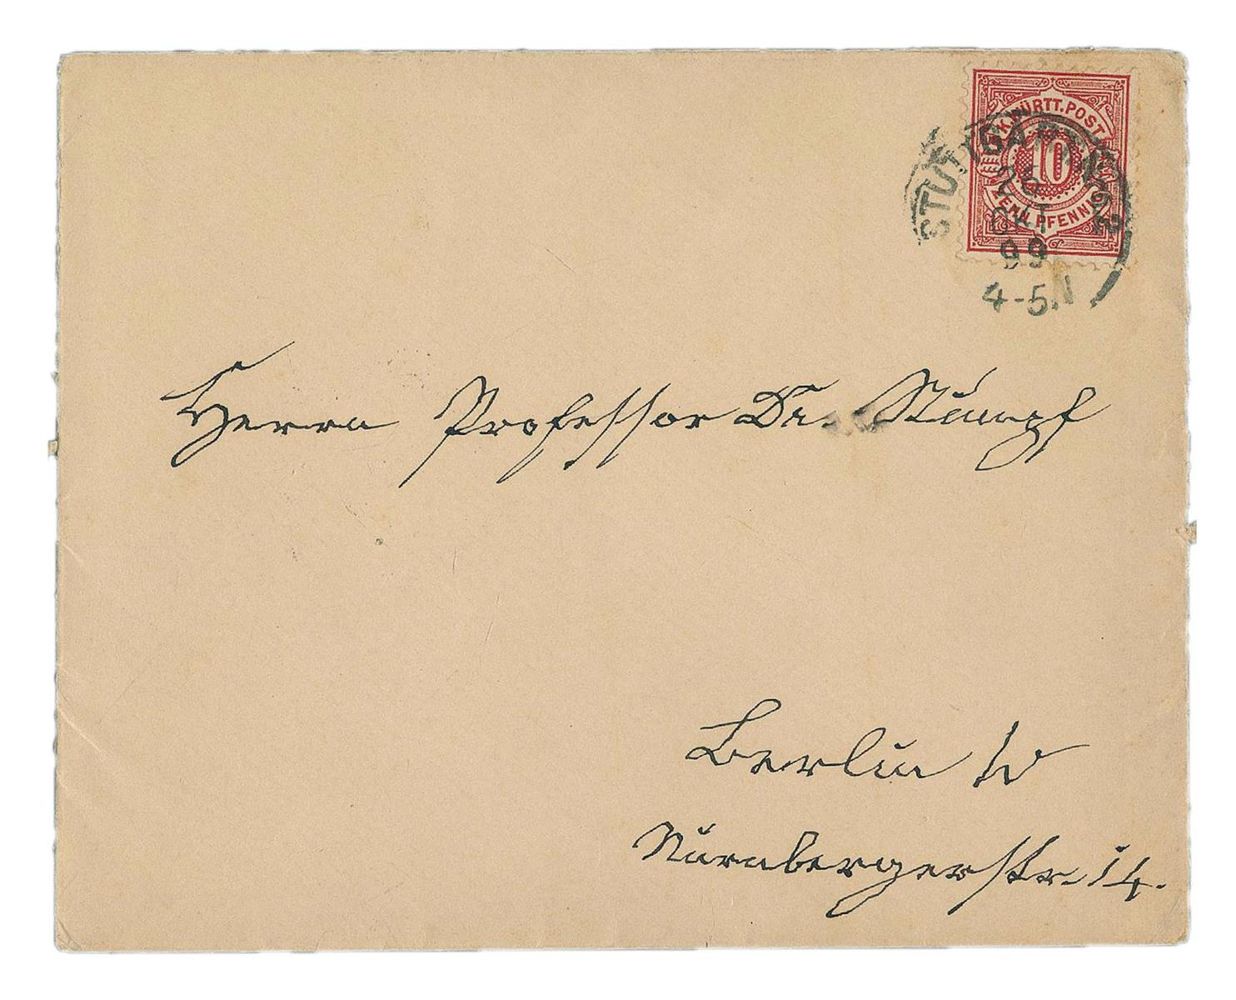 K. WÜRTT. POST
10
ZEHN PFENNIG
STUTTGART No 2
OKT
99
4-5 N
Herrn Professor Dr. Stumpf
Berlin W
Nürnbergerstr. 14.